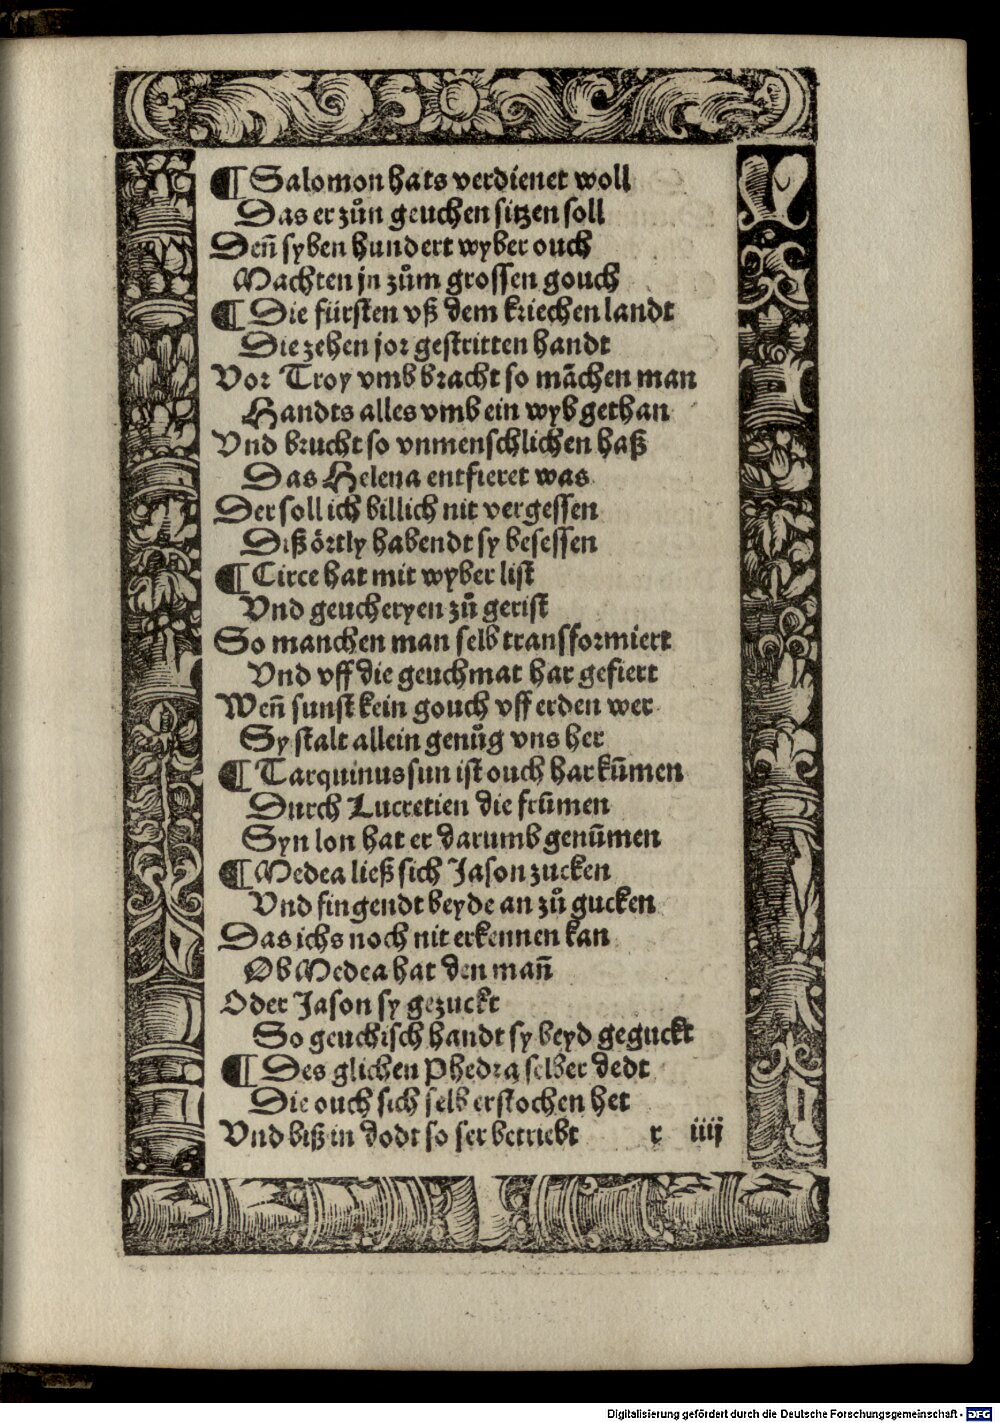 ¶ Salomon hats verdienet woll
Das er zůn geuchen sitzen soll
Deñ syben hundert wyber ouch
Machten jn zům grossen gouch
¶ Die fürsten vß dem kriechen landt
Die zehen jor gestritten handt
Vor Troy vmb bracht so mãchen man
Handts alles vmb ein wyb gethan
Vnd brucht so vnmenschlichen haß
Das Helena entfieret was
Der soll ich billich nit vergessen
Diß örtly habendt sy besessen
¶ Circe hat mit wyber list
Vnd geucheryen zů gerist
So manchen man selb transformiert
Vnd vff die geuchmat har gefiert
Weñ sunst kein gouch vff erden wer
Sy stalt allein genůg vns her
¶ Tarquinus sun ist ouch har kũmen
Durch Lucretien die frũmen
Syn lon hat er darumb genũmen
¶ Medea ließ sich Jason zucken
Vnd fingendt beyde an zů gucken
Das ichs noch nit erkennen kan
Ob Medea hat den mañ
Oder Jason sy gezuckt
So geuchisch handt sy beyd geguckt
¶ Des glichen Phedra selber dedt
Die ouch sich selb erstochen het
Vnd biß in dodt so ser betriebt r iiij
Digitalisierung gefördert durch die Deutsche Forschungsgemeinschaft - DFG